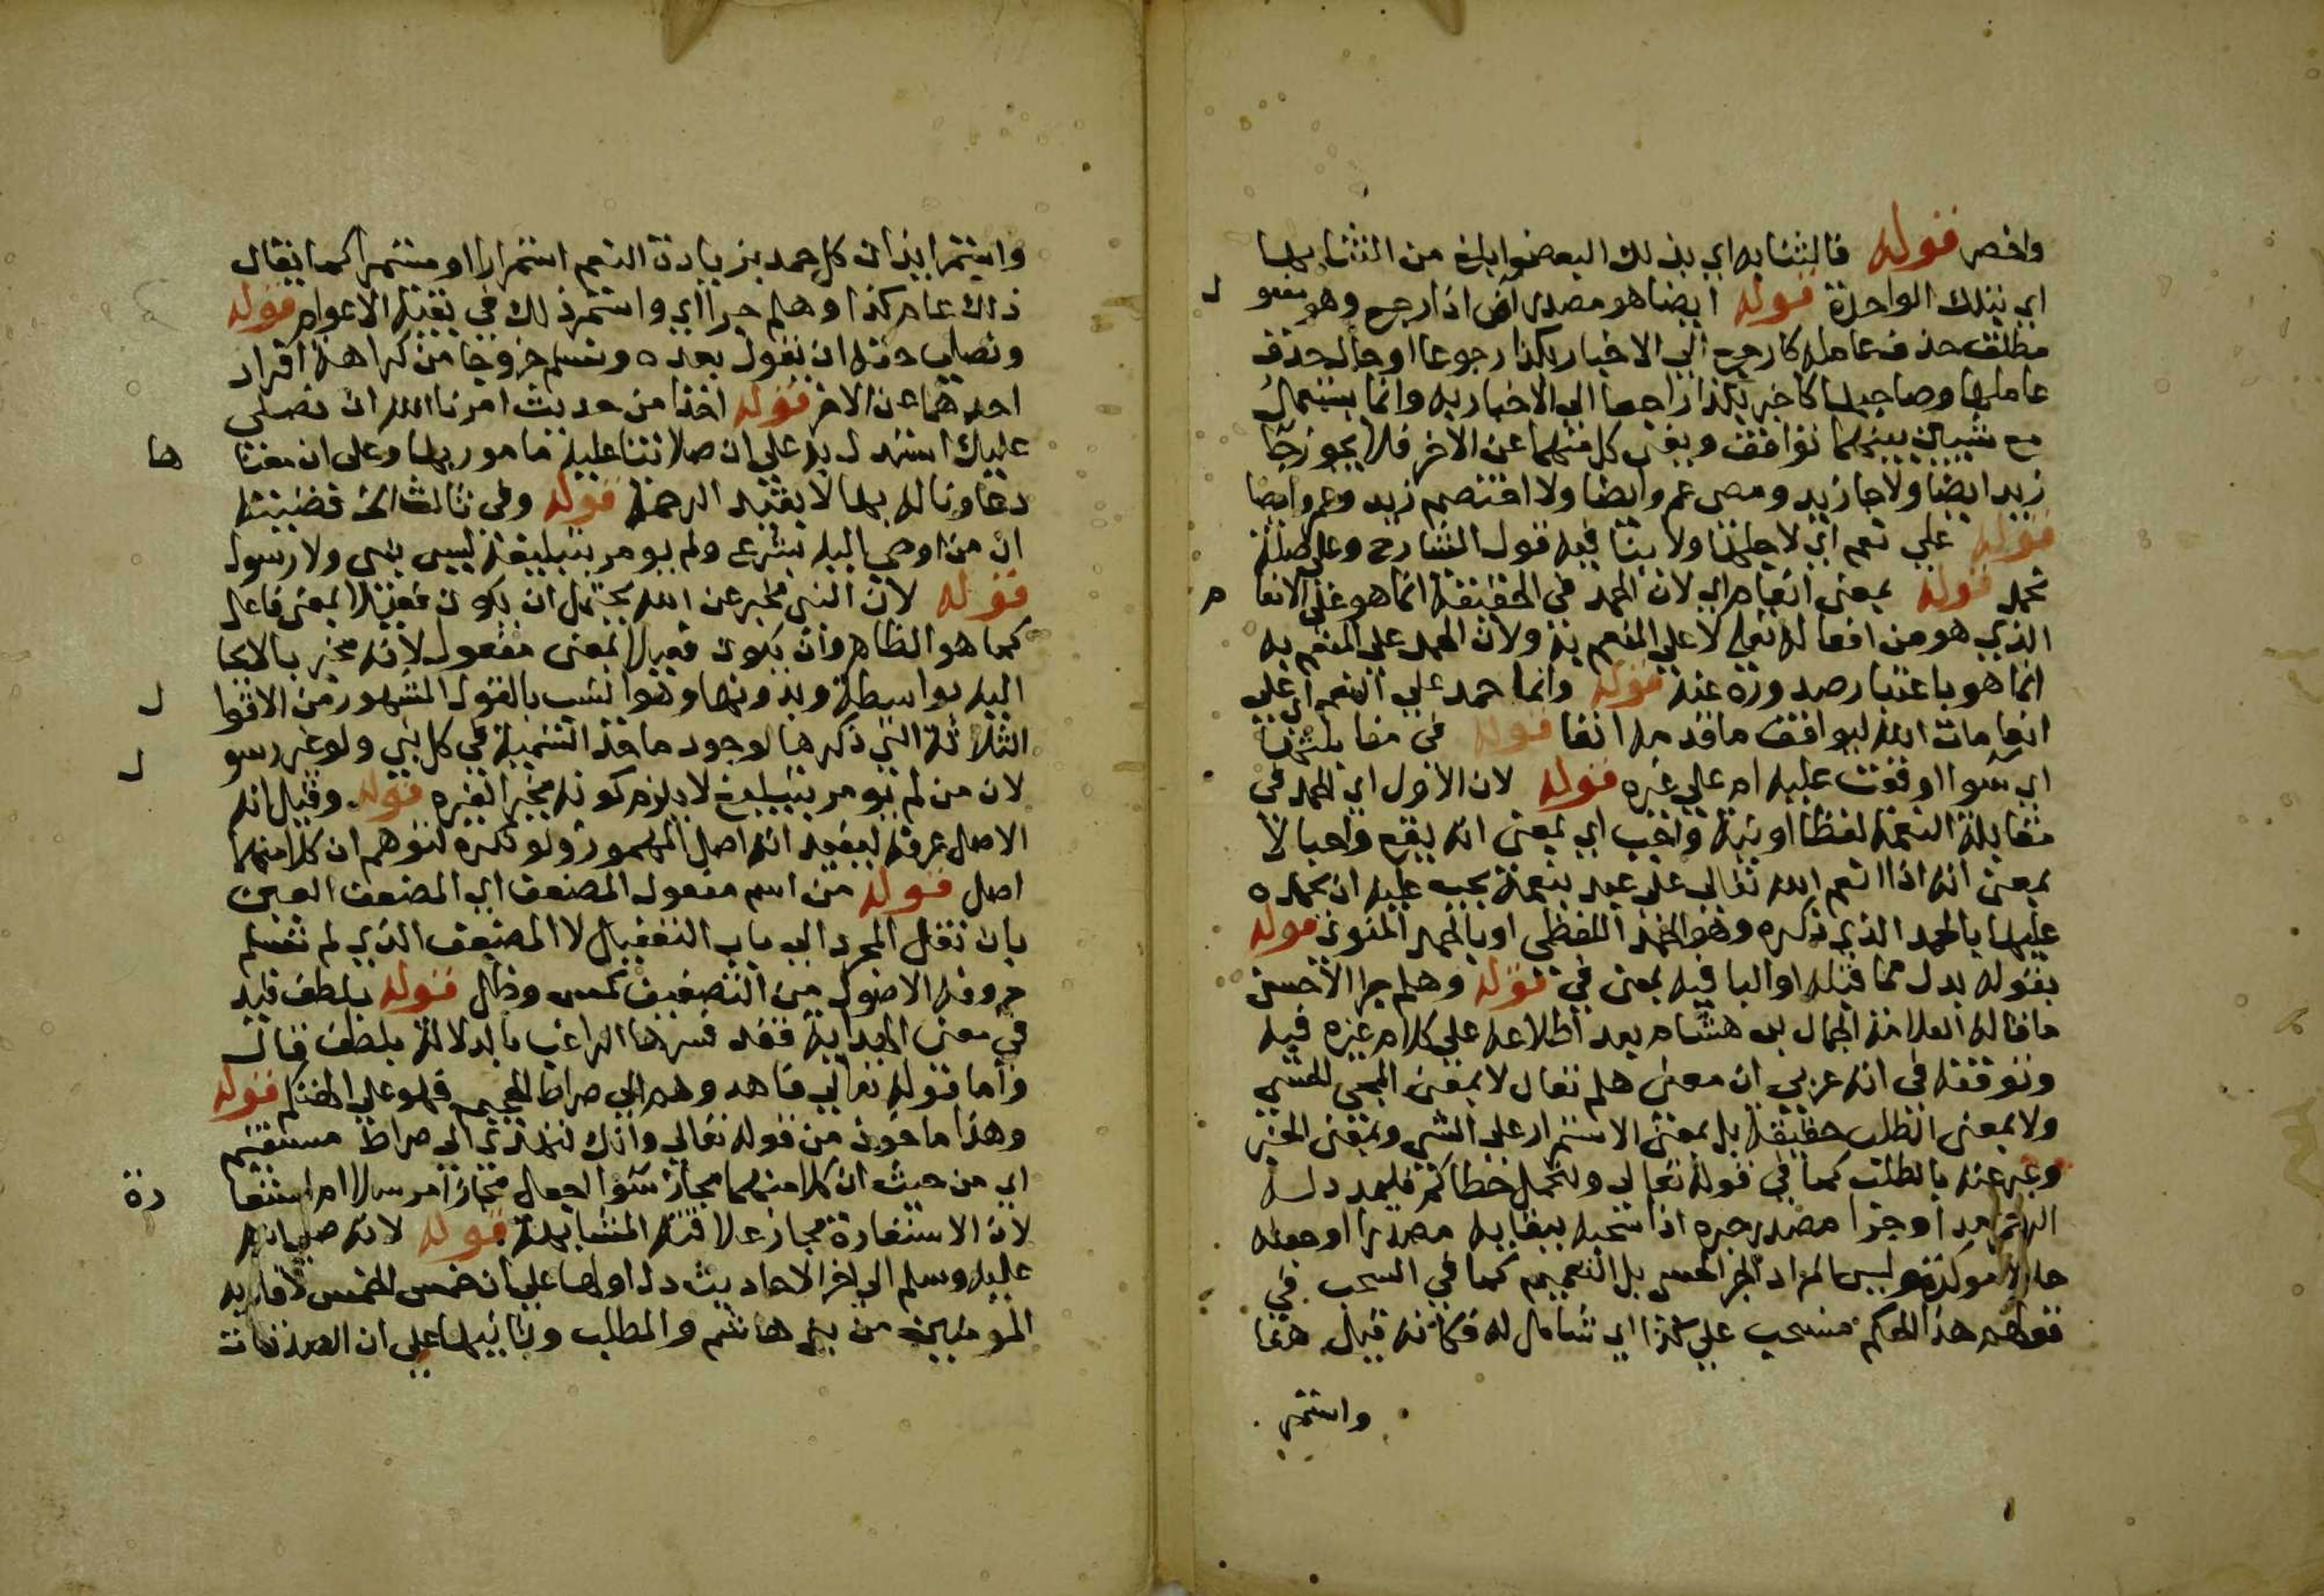 واخصر قوله فالثنا به اي بذلك البعض ابلغ من الثنا بها
اي بتلك الواحدة قوله ايضا هو مصدر آض اذا رجع وهو مفعو ل
مطلق حذف عامله كارجع الي الاخبار بكذا رجوعا او حال حذف
عاملها وصاحبها كاخبر بكذا راجعا الي الاخبار به وانما يستعمل
مع شيئين بينهما توافق ويغني كل منهما عن الاخر فلا يجوز جا
زيد ايضا ولا جا زيد ومضى عمر وايضا ولا اختصم زيد وعمر وايضا
قوله علي نعم اي لاجلها ولا ينا فيه قول الشارح وعلي صلة
نحمد قوله بمعنى انعام اي لان الحمد في الحقيقة انما هو علي الانعا م
الذي هو من افعاله تعالى لا علي المنعم به ولان الحمد علي المنعم به
انما هو باعتبار صدوره عنه قوله وانما حمد علي النعم اي علي
انعامات الله ليوافق ما قدمه انفا قوله في مقابلتها
اي سوا اوقعت عليه ام علي غيره قوله لان الاول اي الحمد في
مقابلة النعمة لفظا او نية واجب اي بمعنى انه يقع واجبا لا
بمعنى انه اذا انعم الله تعالي علي عبد بنعمة يجب عليه ان يحمده
عليها بالحمد الذي ذكره وهو الحمد اللفظي او بالحمد المنوي قوله
بقوله بدل مما قبله او البا فيه بمعنى في قوله وهلم جرا الاحسن
ما قاله العلامة الجمال بن هشام بعد اطلاعه علي كلام غيره فيه
وتوقفه في انه عربي ان معنى هلم تعال لا بمعنى المجي الحسي
ولا بمعنى الطلب حقيقة بل بمعنى الاستمرار علي الشي وبمعنى الخبر
وعبر عنه بالطلب كما في قوله تعالي ولنحمل خطاياكم فليمدد له
الرحمن مدا وجرا مصدر جره اذا سحبه ببقايه مصدرا او جعله
حالا موكدة وليس المراد الجر الحسي بل التعميم كما في السحب في
قولهم هذا الحكم منسحب علي كذا اي شامل له فكانه قيل هنا
واستمر
واستمر ايذان كل حمد بزيادة النعم استمرارا او مستمرا كما يقال
ذلك عام كذا وهلم جرا اي واستمر ذلك في بقية الاعوام قوله
ونصلي حقه ان يقول بعده ونسلم خروجا من كراهة افراد
احدهما عن الاخر قوله اخذا من حديث امرنا الله ان نصلي
عليك استدل به علي ان صلاتنا عليه مامور بها وعلى ان معنا ها
دعاونا له بها لا بقيد الرحمة قوله وفي ثالث الخ قضيته
ان من اوحي اليه بشرع ولم يومر بتبليغه ليس بنبي ولا رسول
قوله لان النبي مخبر عن الله يحتمل ان يكون فعيلا بمعنى فاعل
كما هو الظاهر وان يكون فعيلا بمعنى مفعول لانه مخبر بالايحا
اليه بواسطة وبدونها وهو انسب بالقول المشهور من الاقوا ل
الثلاثة التي ذكرها لوجود ماخذ التسمية في كل نبي ولو غير رسو ل
لان من لم يومر بتبليغ لا يلزم كونه مخبرا لغيره قوله وقيل انه
الاصل عرفه ليفيد انه اصل المهموز ولو نكره لتوهم ان كلا منهما
اصل قوله من اسم مفعول المضعف اي المضعف العين
بان نقل المجرد الي باب التفعيل لا المضعف الذي لم تسلم
حروفه الاصول من التضعيف كمس وظل قوله بلطف قيد
في معنى الهداية فقد فسرها الراغب بالدلالة بلطف قال
واما قوله تعالي فاهدوهم الي صراط الجحيم فهو علي التهكم قوله
وهذا ماخوذ من قوله تعالي وانك لتهدي الي صراط مستقيم
اي من حيث ان كلا منهما مجاز سوا اجعل مجازا مرسلا ام استعا رة
لان الاستعارة مجاز علاقته المشابهة قوله لانه صلي الله
عليه وسلم الي اخر الاحاديث دل اولها علي ان خمس الخمس لاقاربه
المومنين من بني هاشم والمطلب وثانيها علي ان الصدقات